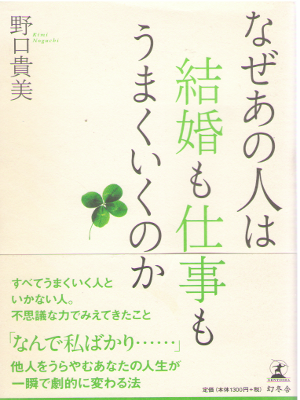 なぜあの人は
結婚も仕事も
うまくいくのか
野口貴美
Kimi
Noguchi
すべてうまくいく人と
いかない人。
不思議な力でみえてきたこと
「なんで私ばかり……」
他人をうらやむあなたの人生が
一瞬で劇的に変わる法
定価(本体1300円+税)
幻冬舎